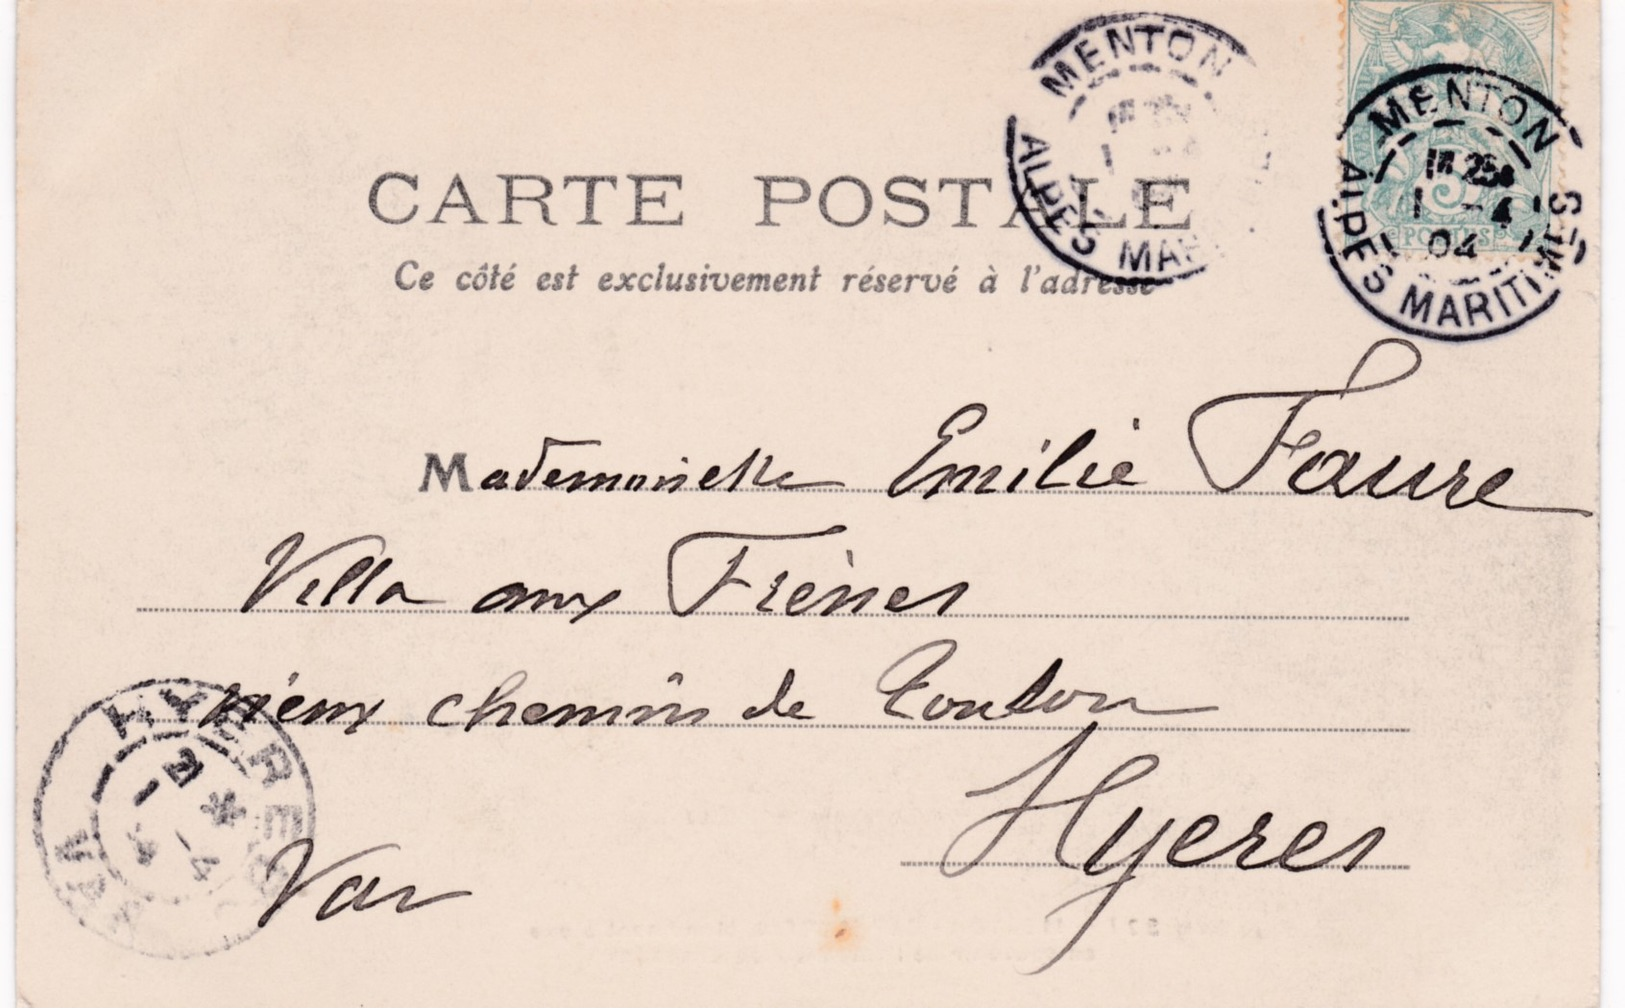 MENTON
ALPES MAR
MENTON
III 25
1 -4
04
ALPES MARITIMES
5
POSTES
CARTE POSTALE
Ce côté est exclusivement réservé à l'adresse
Mademoiselle Emilie Faure
Villa aux Frènes
vieux chemin de Toulon
Hyeres
Var
HYERES
VAR